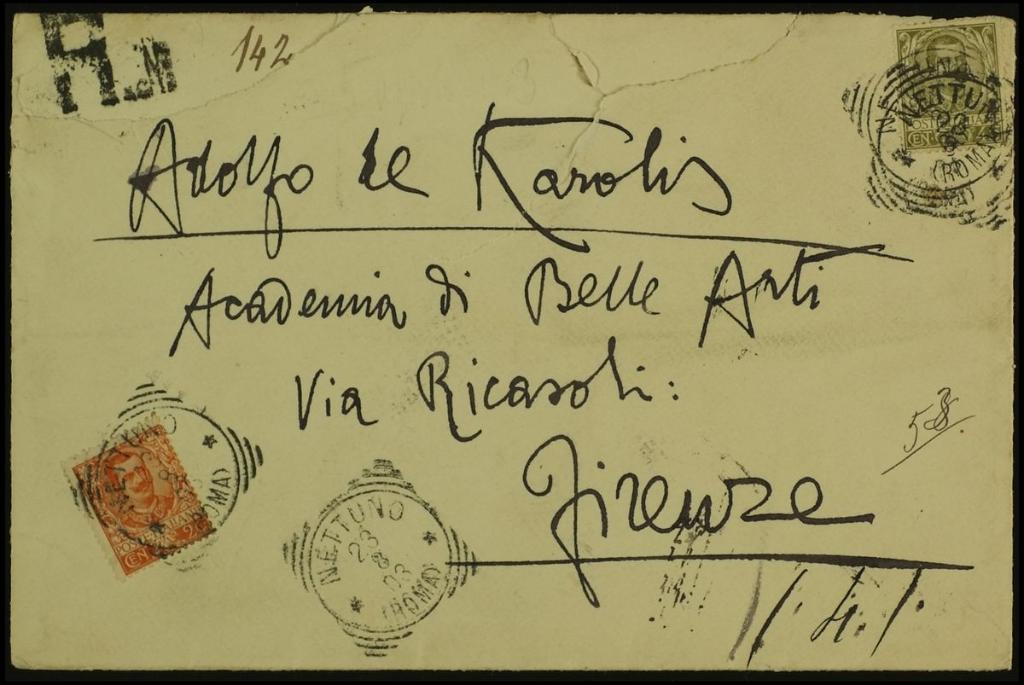 R.M
142
NETTUNO
(ROMA)
Adolfo de Karolis
Academia di Belle Arti
Via Ricasoli:
Firenze
58.
NETTUNO
23
8
03
(ROMA)